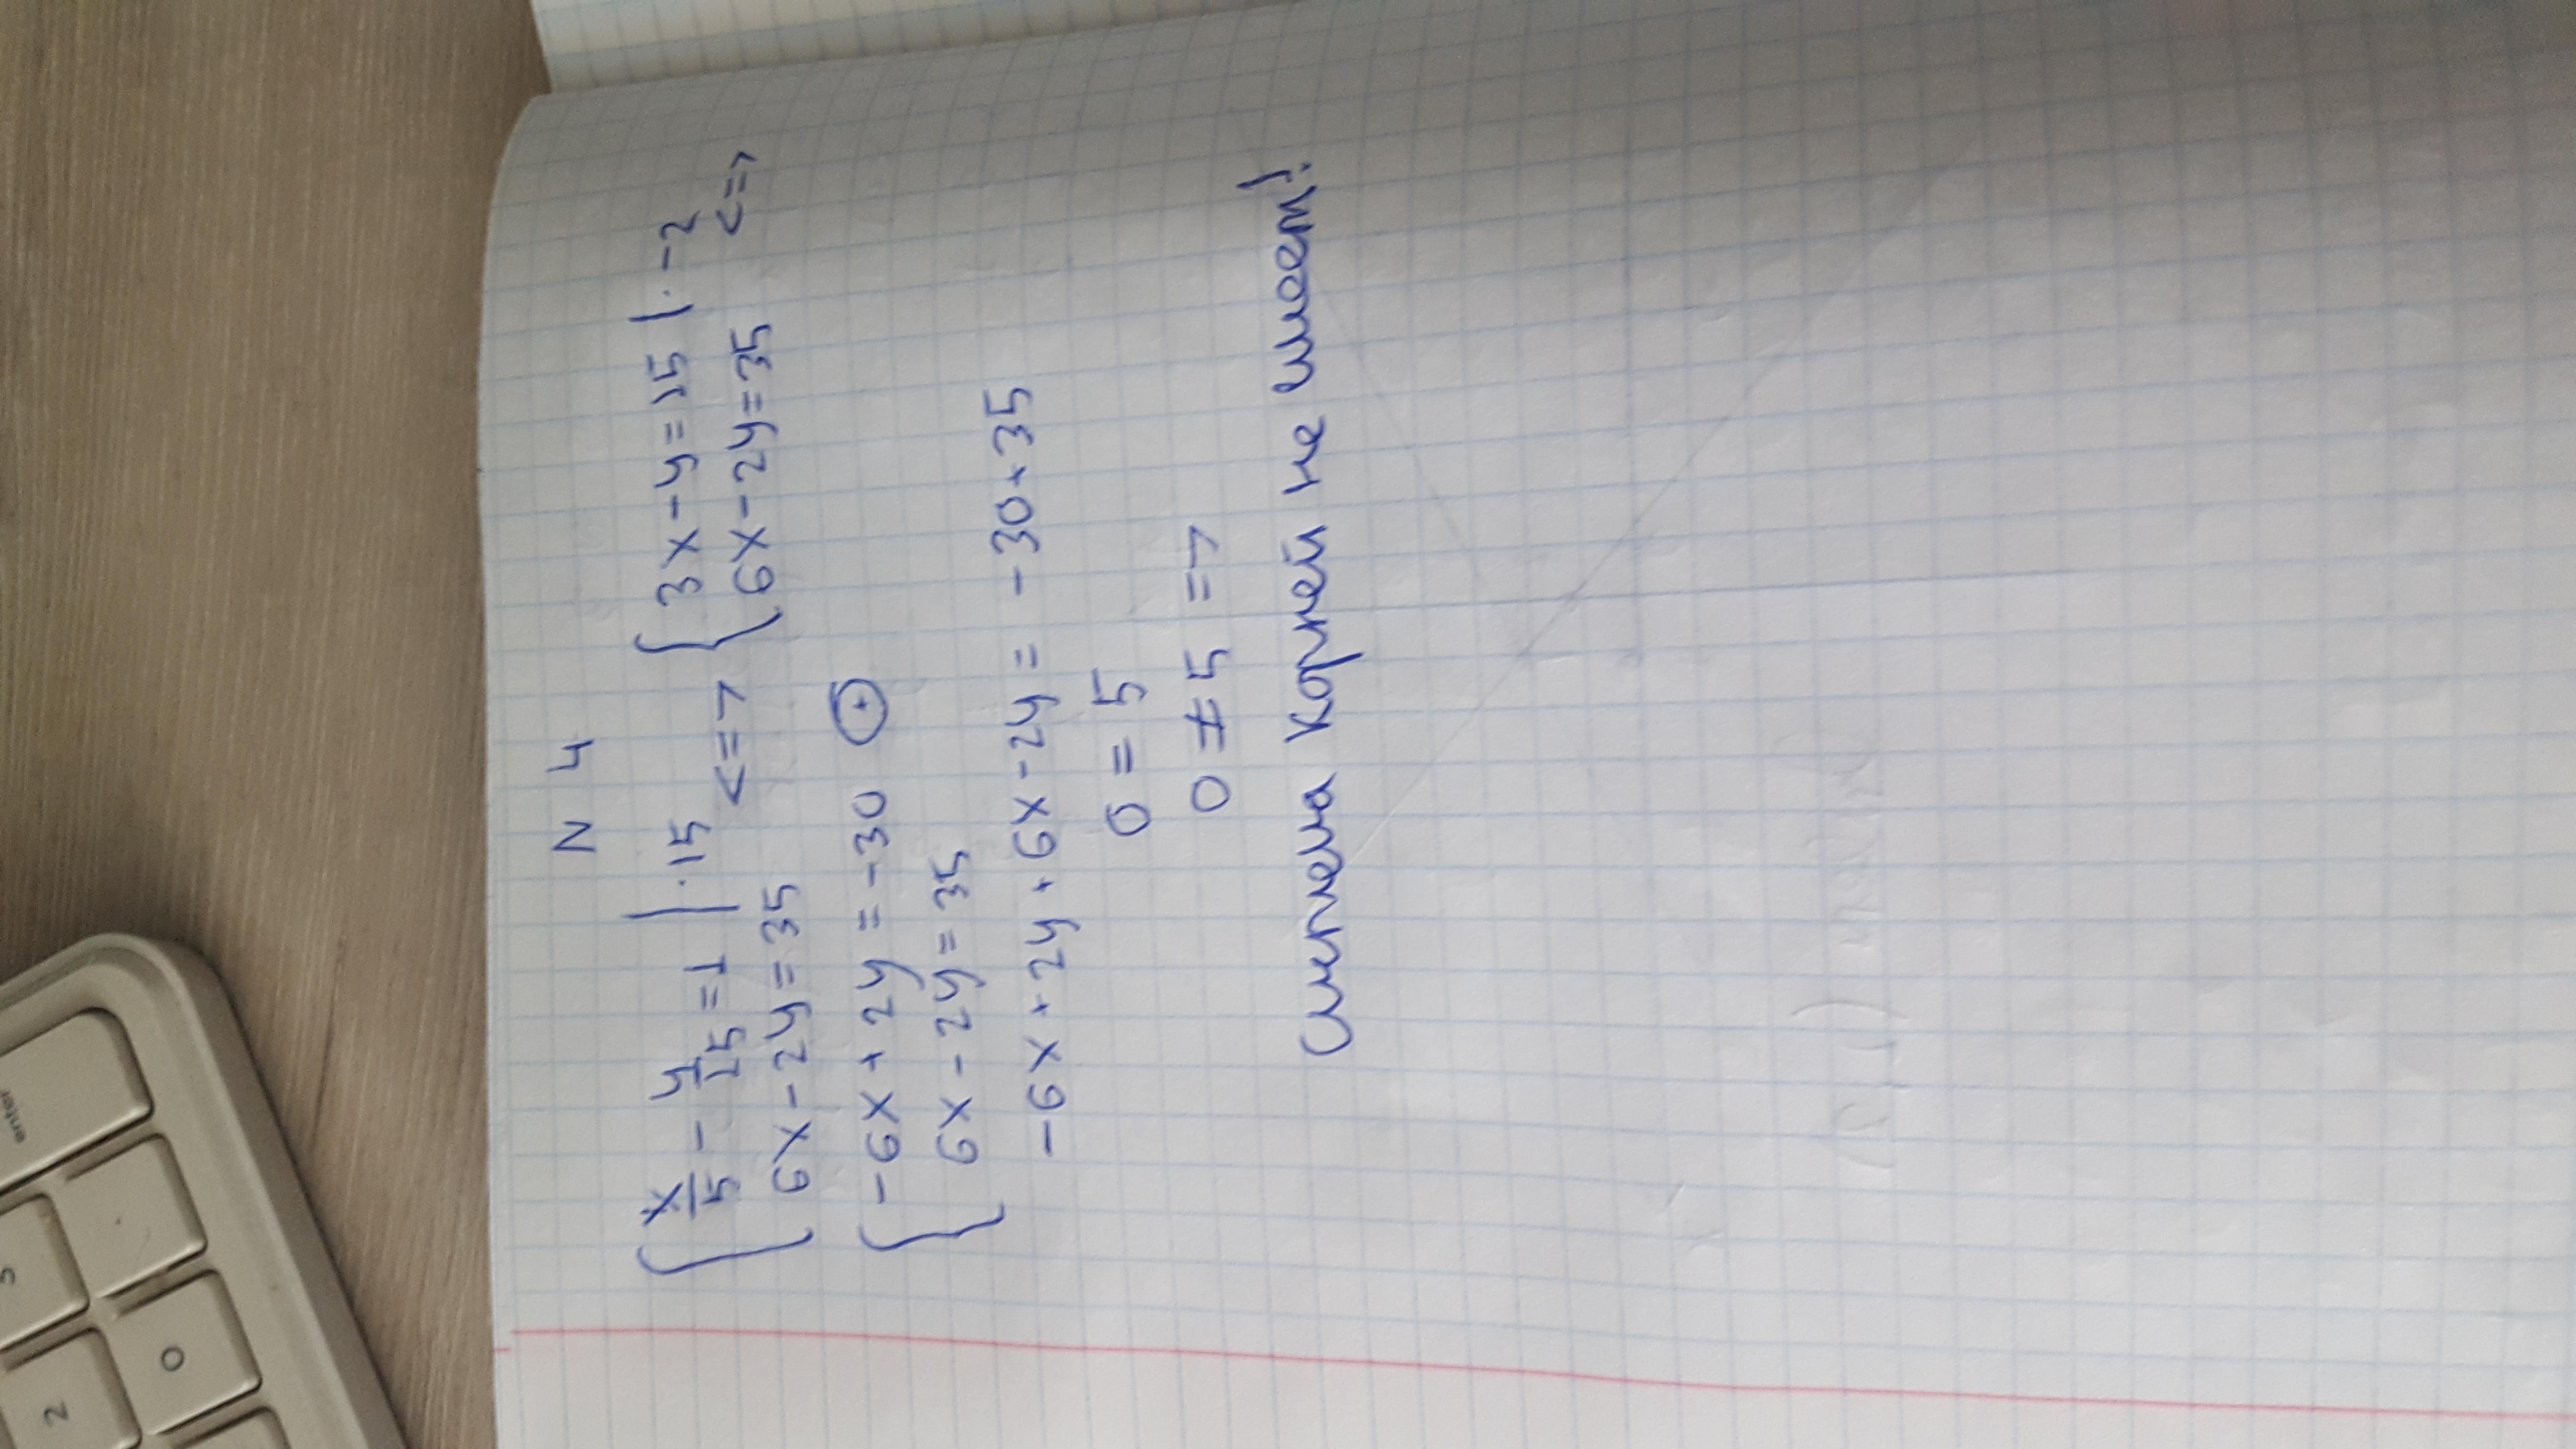 N 4
{ x/5 - y/15 = 1 | · 15
6x - 2y = 35 <=> { 3x - y = 15 | · -2
6x - 2y = 35 <=>
{ -6x + 2y = -30 ⊕
6x - 2y = 35
-6x + 2y + 6x - 2y = -30 + 35
0 = 5
0 ≠ 5 =>
Система корней не имеет!
enter
3
2
0